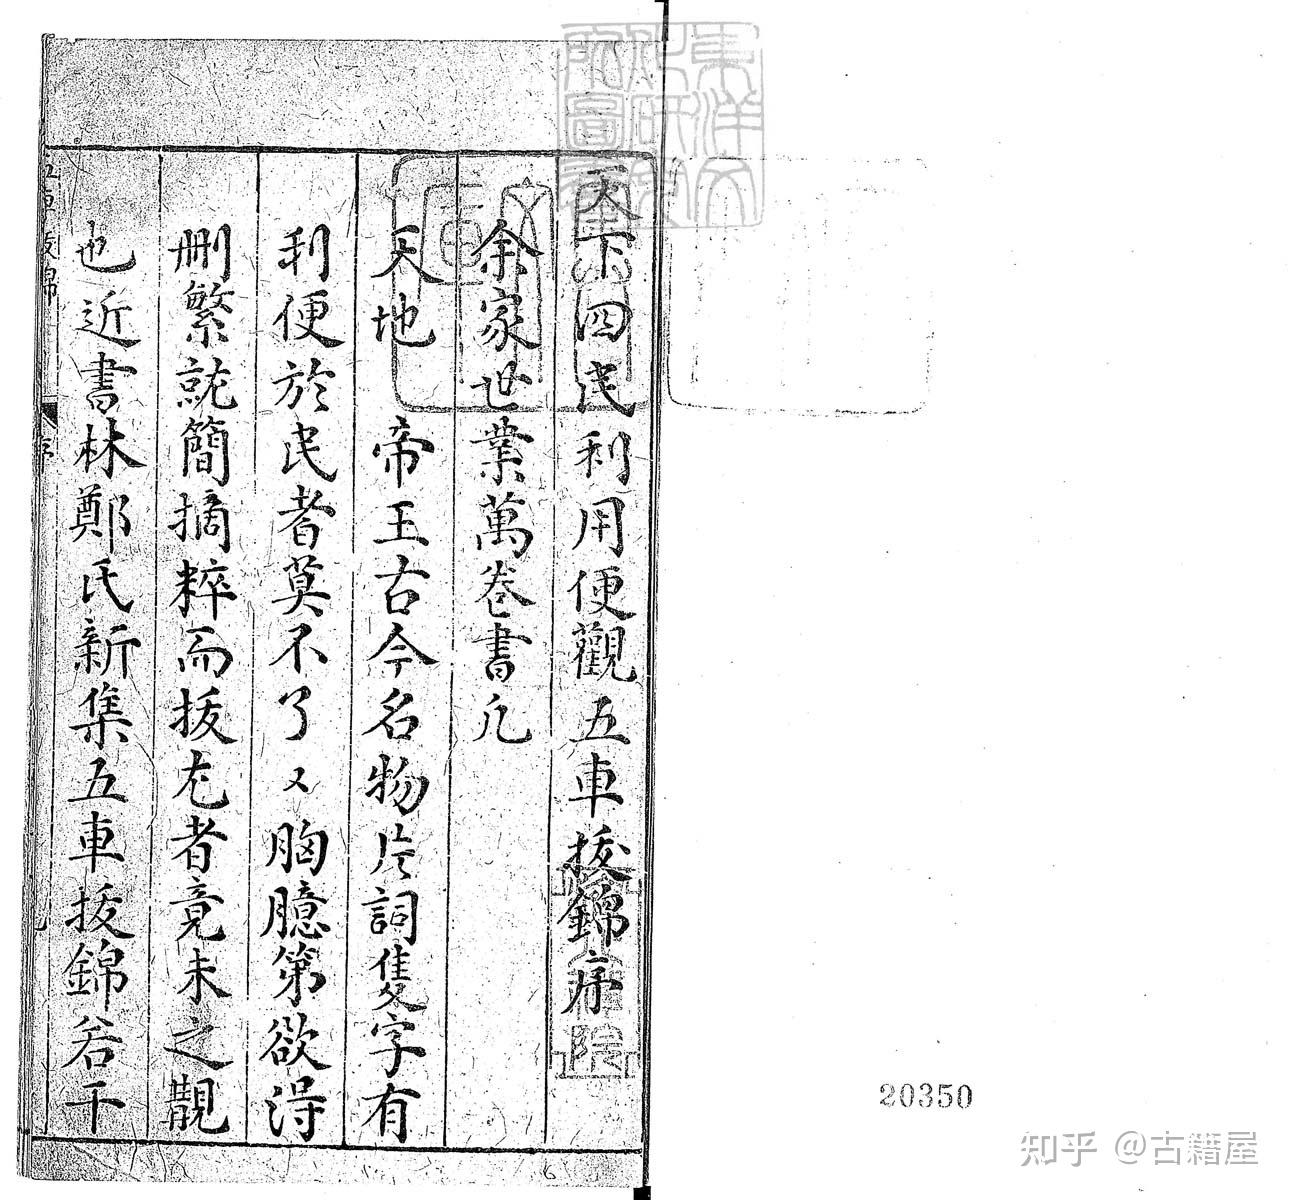 天下四民利用便觀五車拔錦序
余家世業萬卷書凡
天地　帝王古今名物片詞隻字有
利便於民者莫不了〻胸臆第欲淂
刪繁就簡摘粹而拔尤者竟未之覩
也近書林鄭氏新集五車拔錦若干
五車拔錦
序
東洋文化研究所圖書
20350
知乎 @古籍屋